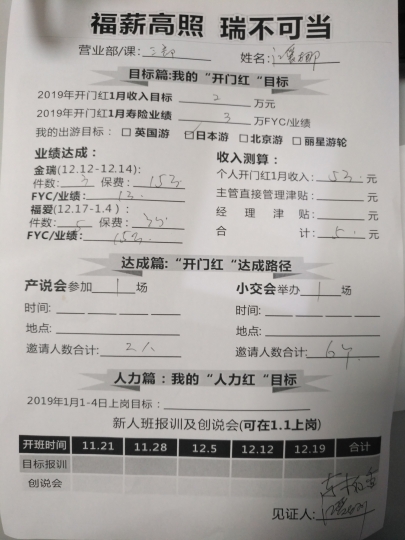 福薪高照 瑞不可当
营业部/课: 三部 姓名:
目标篇:我的“开门红“目标
2019年开门红1月收入目标 2 万元
2019年开门红1月寿险业绩 3 万FYC/业绩
我的出游目标: □英国游 ☑日本游 □北京游 □丽星游轮
业绩达成: 收入测算:
金瑞(12.12-12.14): 个人开门红1月收入: 5万 元
件数: 3 保费: 15万 主管直接管理津贴: 元
FYC/业绩: 经理津贴: 元
福爱(12.17-1.4): 合计: 5. 元
件数: 5 保费:
FYC/业绩:
达成篇:“开门红“达成路径
产说会参加 1 场 小交会举办 1 场
时间: 时间:
地点: 地点:
邀请人数合计: 2人 邀请人数合计: 6个
人力篇:我的“人力红“目标
2019年1月1-4日上岗目标:
新人班报训及创说会(可在1.1上岗)
开班时间 11.21 11.28 12.5 12.12 12.19 合计
目标报训
创说会
见证人: